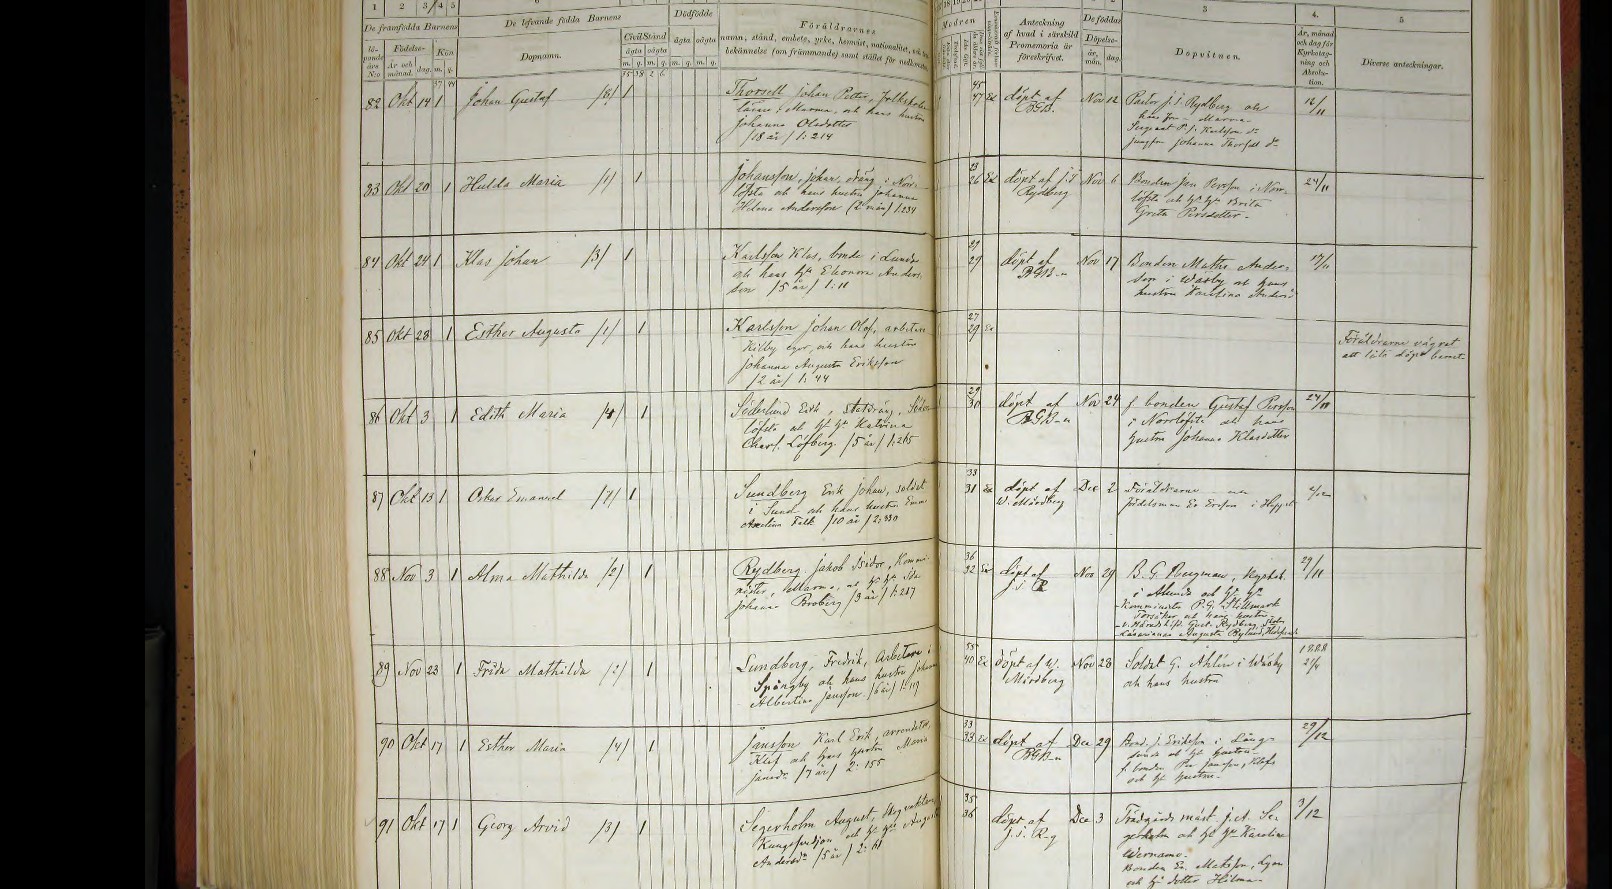 1 2 3/4 5
De framfödda Barnens
De lefvande födda Barnens
Dödfödde
Föräldrarnes
namn, stånd, embete, yrke, hemvist, nationalitet,
bekännelse (om främmande) samt stället för nedkomsten
Födelse-
Kön
Dopnamn.
Civil Stånd
ägta oägta
ägta oägta
År och månad. dag. m. q.
m. q. m. q. m. q. m. q.
82 Okt 14 1 Johan Gustaf /8/ 1
Thorsell Johan Petter, Folkskole-
lärare i Marma och hans hustru
Johanna Olsdotter
/18 år/ 1: 214
83 Okt 20 1 Hulda Maria /1/ 1
Johansson, Johan, dräng i Norr-
löfsta och hans hustru Johanna
Helena Andersson (2 mån) 1:234
84 Okt 24 1 Klas Johan /3/ 1
Karlsson Klas, bonde i Lunda
och hans ht Eleonora Anders-
son /5 år/ 1: 11
85 Okt 28 1 Esther Augusta /1/ 1
Karlsson Johan Olof, arbetare
Kilby egor, och hans hustru
Johanna Augusta Eriksson
/2 år/ 1: 44
86 Okt 3 1 Edith Maria /4/ 1
Söderlund Erik, statdräng, Söder-
löfsta och Katrina
Charl. Löfberg /5 år/ 1:265
87 Okt 13 1 Oskar Emanuel /7/ 1
Sundberg Erik Johan, soldat
i Sund och hans hustru Emma
Falk /10 år/ 2:330
88 Nov 3 1 Alma Mathilda /2/ 1
Rydberg Jakob Isidor, Kommi-
nister, Marma, och Ida
Johanna Broberg /3 år/ 1:217
89 Nov 23 1 Frida Mathilda /2/ 1
Lundberg, Fredrik, Arbetare i
Spångby och hans hustru Johanna
Albertina Jansson /6 år/ 1:119
90 Okt 17 1 Esther Maria /4/ 1
Jansson Karl Erik, arrendator,
Klef och hans hustru Maria
Jansdr /7 år/ 2: 155
91 Okt 17 1 Georg Arvid /3/ 1
Segerholm August, Skogvaktare
Kungsvedjan och Augusta
Andersdr /5 år/ 2: 61
Modren
Anteckning
af hvad i särskild
Promemoria är
föreskrifvet.
De föddas
Döpelse-
år, mån. dag.
3
Dopvittnen.
4.
År, månad
och dag för
Kyrkotag-
ning och
Absolu-
tion.
5
Diverse anteckningar.
45
47 Ex döpt af
B.G.B. Nov 12
Pastor J. I. Rydberg och
hans fru - Marma -
Sergeant P. J. Karlsson dr
Jungfru Johanna Thorsell dr
12/11
23
26 Ex döpt af J. I
Rydberg Nov 6
Bonden Jan Persson i Norr-
löfsta och Brita
Greta Persdotter -
24/11
29
29 döpt af
B.G.B-n Nov 17
Bonden Maths Anders-
son i Wäsby och hans
hustru Karolina
17/11
27
29 Ex
Föräldrarne vägrat
att låta döpa barnet
29
30 döpt af
B.G.B-n Nov 24
f bonden Gustaf Persson
i Norrlöfsta och hans
hustru Johanna Klasdotter
24/11
33
31 Ex döpt af
W. Mårdberg Dec 2
Föräldrarne och
Er Ersson i
2/12
36
32 Ex döpt af
J. I. R Nov 29
B. G. Bergman, kyrkoh.
i Alunda och
Komminister P. G. Stillmark
och hans hustru
Gust. Rydberg
Augusta Bylund,
29/11
55
40 Ex döpt af W.
Mårdberg Nov 28
Soldat G. Ahlin i Wäsby
och hans hustru
1888
33
33 Ex döpt af
B.G.B-n Dec 29
Bond. J. Eriksson i Lång-
och hustru
f. bonden Per Jansson, Klef
och hustru -
29/12
35
36 döpt af
J. I. R-g Dec 3
Trädgårds mäst. J. A. Se-
gerholm och Karolina
Wernamo -
Bonden Er. Matsson,
och dotter Hilma -
3/12